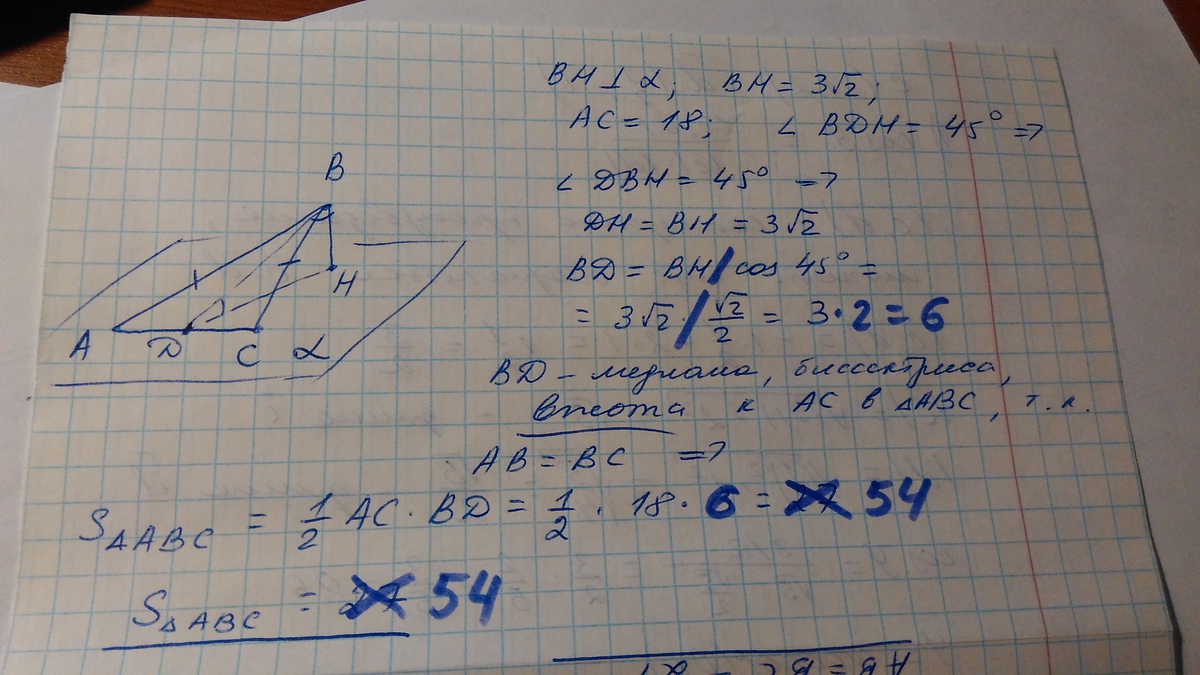 BH ⊥ α; BH = 3√2;
AC = 18; ∠ BDH = 45° =>
∠ DBH = 45° =>
DH = BH = 3√2
BD = BH / cos 45° =
= 3√2 / √2/2 = 3·2 = 6
BD - медиана, биссектриса,
высота к AC в △ABC, т.к.
AB = BC =>
S△ABC = 1/2 AC · BD = 1/2 · 18 · 6 = 27 54
S△ABC = 27 54
B
H
A D C α